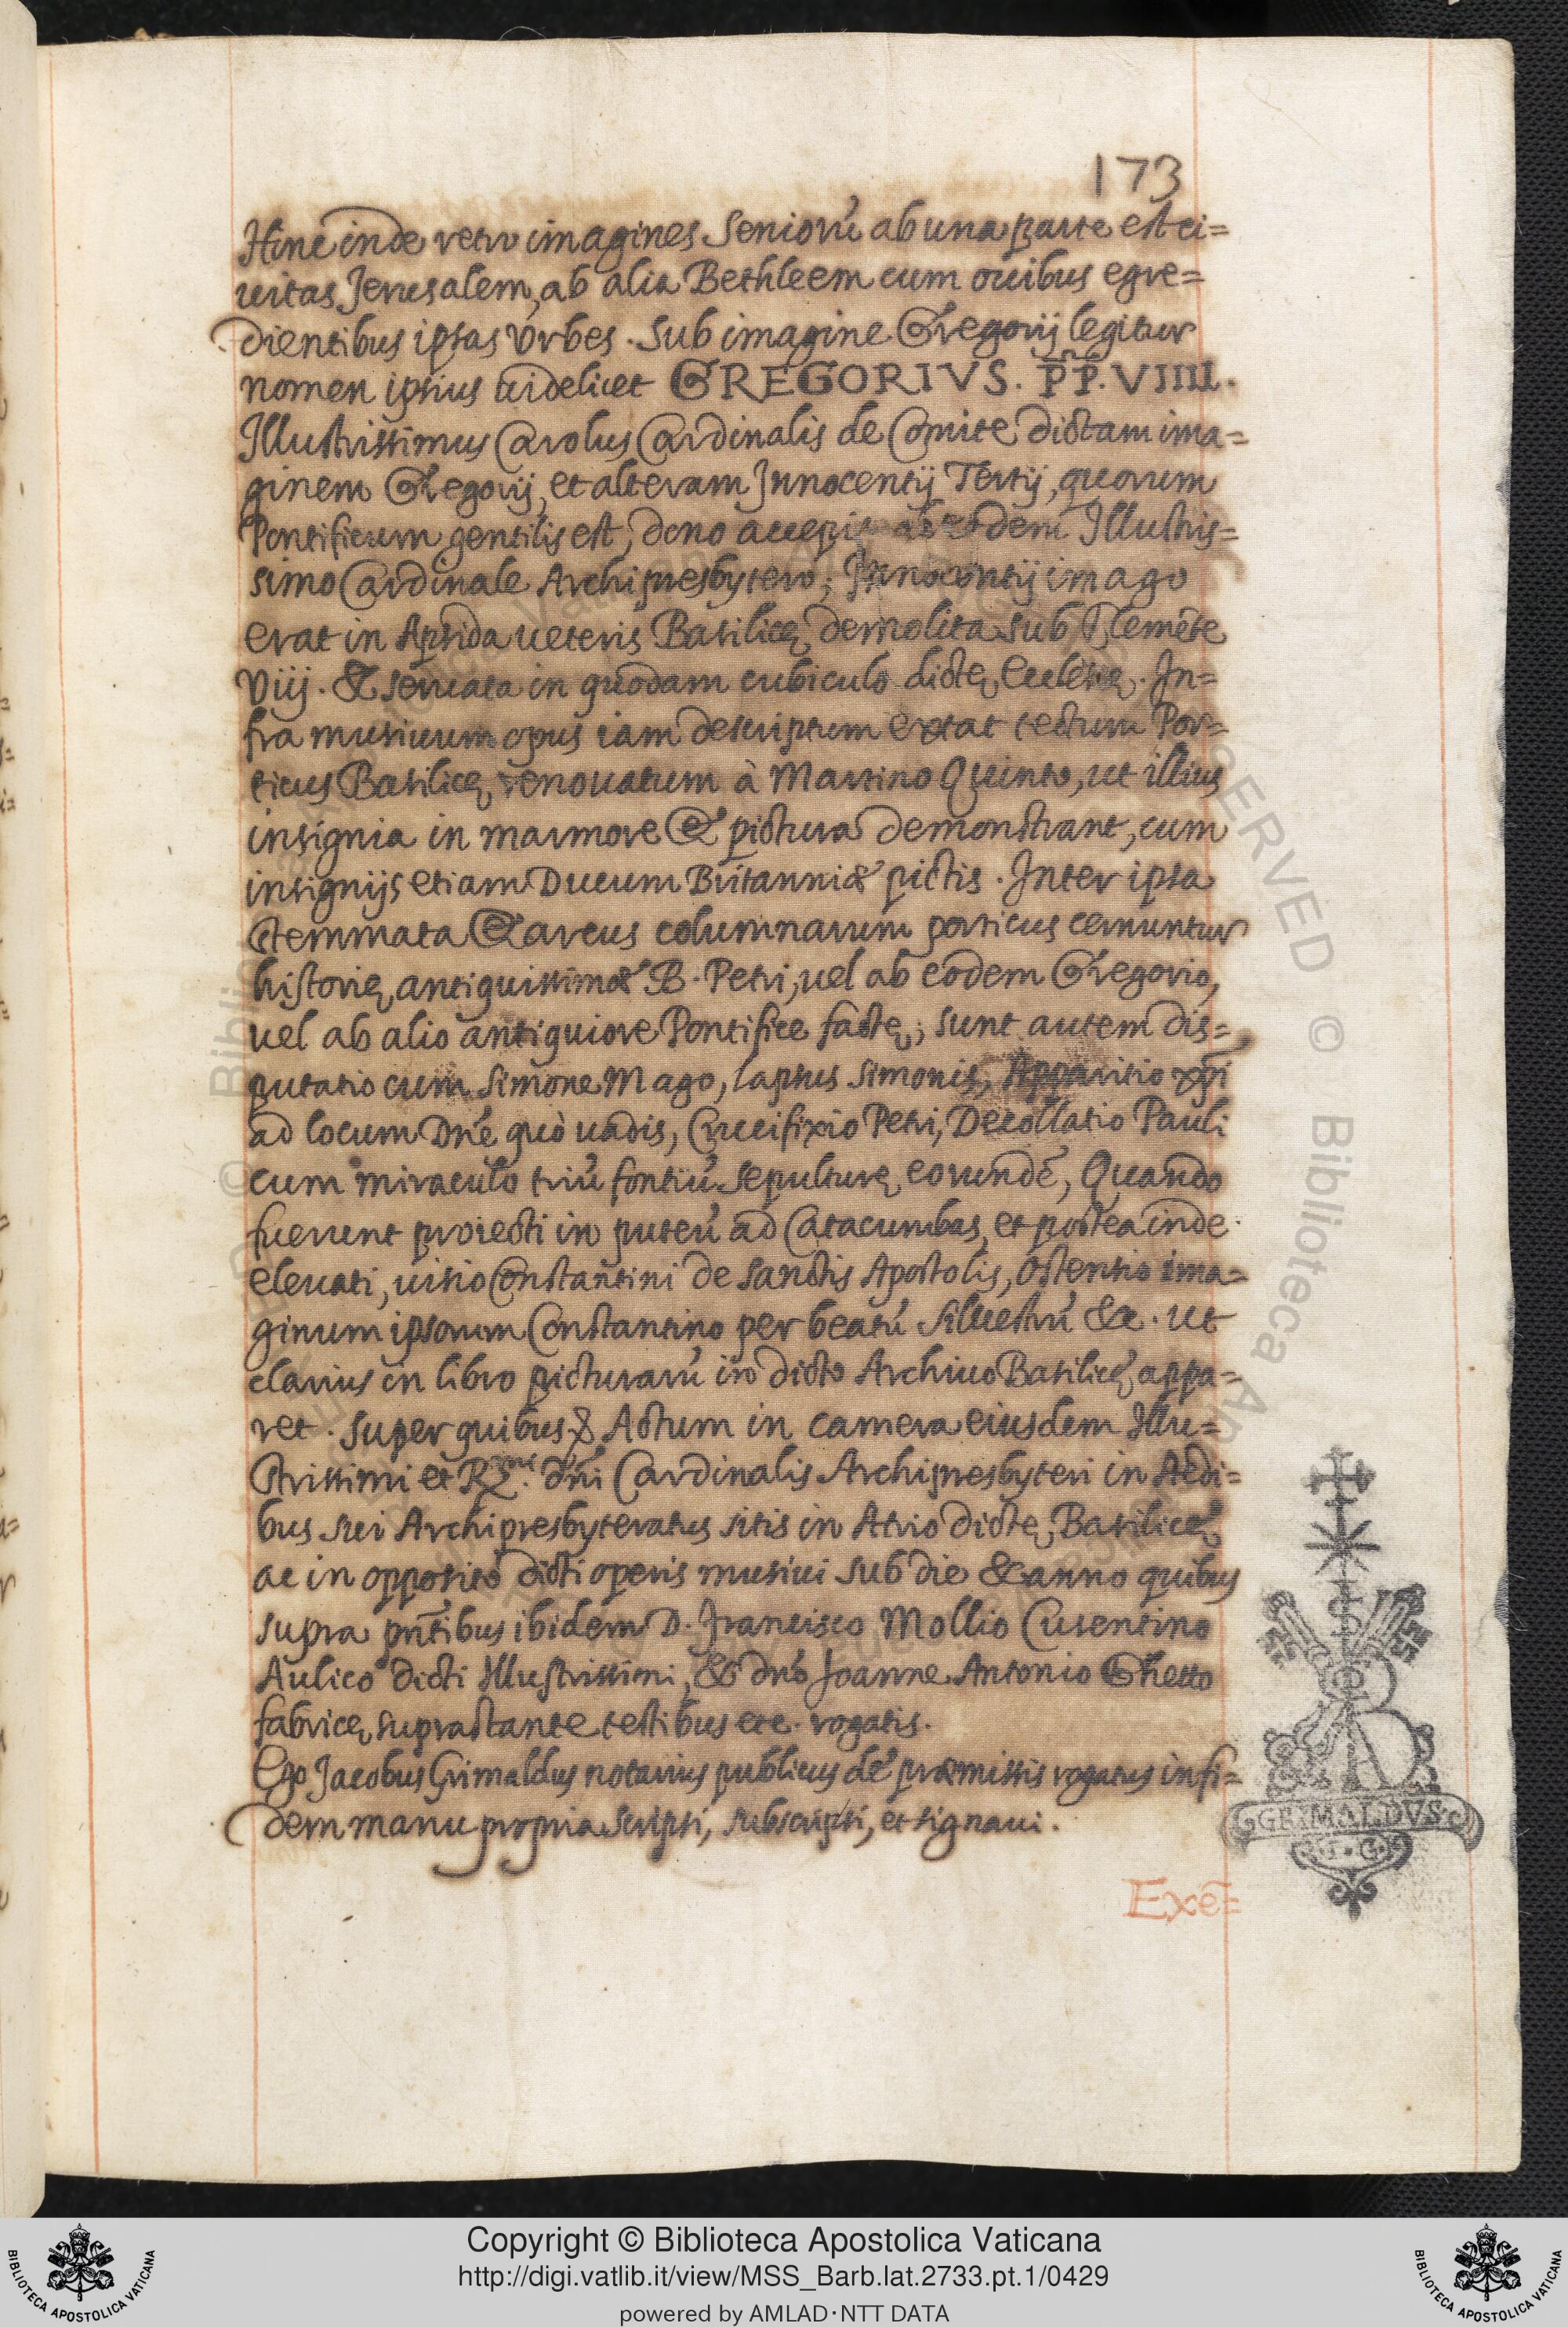 173
Hinc inde retro imagines Seniorũ ab una parte est ci=
uitas Jerusalem, ab alia Bethleem cum ouibus egre=
dientibus ipsas Vrbes. Sub imagine Gregorij legitur
nomen ipsius uidelicet GREGORIVS. P̄P̄. VIIII.
Illustrissimus Carolus Cardinalis de Comite dictam ima=
ginem Gregorij, et alteram Innocentij Tertij, quorum
Pontificum gentilis est, dono accepit ab eodem Illustris=
simo Cardinale Archipresbytero; Innocentij imago
erat in Apsida ueteris Basilicę demolita sub Clemẽte
Viij. & seruata in quodam cubiculo dictę Ecclesię. In=
fra musiuum opus iam descriptum extat tectum Por=
ticus Basilicę, renouatum à Martino Quinto, ut illius
insignia in marmore & pictura demonstrant, cum
insignijs etiam Ducum Britanniæ pictis. Inter ipsa
stemmata & arcus columnarum porticus cernuntur
historię antiquissimæ B. Petri, uel ab eodem Gregorio,
uel ab alio antiquiore Pontifice factę; sunt autem dis=
putatio cum Simone Mago, lapsus Simonis, Apparitio xp̃i
ad locum Dñe quò uadis, Crucifixio Petri, Decollatio Pauli
cum miraculo triũ fontiũ Sepulturę eorundẽ, Quando
fuerunt proiecti in puteũ ad Catacumbas, et postea inde
eleuati, uisio Constantini de Sanctis Apostolis, Ostensio ima=
ginum ipsorum Constantino per beatũ Siluestrũ &c. ut
clarius in libro picturarũ in dicto Archiuo Basilicę appa=
ret. Super quibus & Actum in camera eiusdem Illu=
strissimi et R.mi dñi Cardinalis Archipresbyteri in Aedi=
bus sui Archipresbyteratus sitis in Atrio dictę Basilicę
ac in opposito dicti operis musiui sub die & anno quibus
supra pñtibus ibidem D. Francisco Mollio Cusentino
Aulico dicti Illustrissimi, & dño Joanne Antonio Ghetto
fabricę suprastante testibus etc. rogatis.
Ego Jacobus Grimaldus notarius publicus de præmissis rogatus in fi=
dem manu propria scripsi, subscripsi, et signaui.
GRIMALDVS
I. G.
Exẽ=
Copyright © Biblioteca Apostolica Vaticana
http://digi.vatlib.it/view/MSS_Barb.lat.2733.pt.1/0429
powered by AMLAD·NTT DATA
BIBLIOTECA APOSTOLICA VATICANA
BIBLIOTECA APOSTOLICA VATICANA